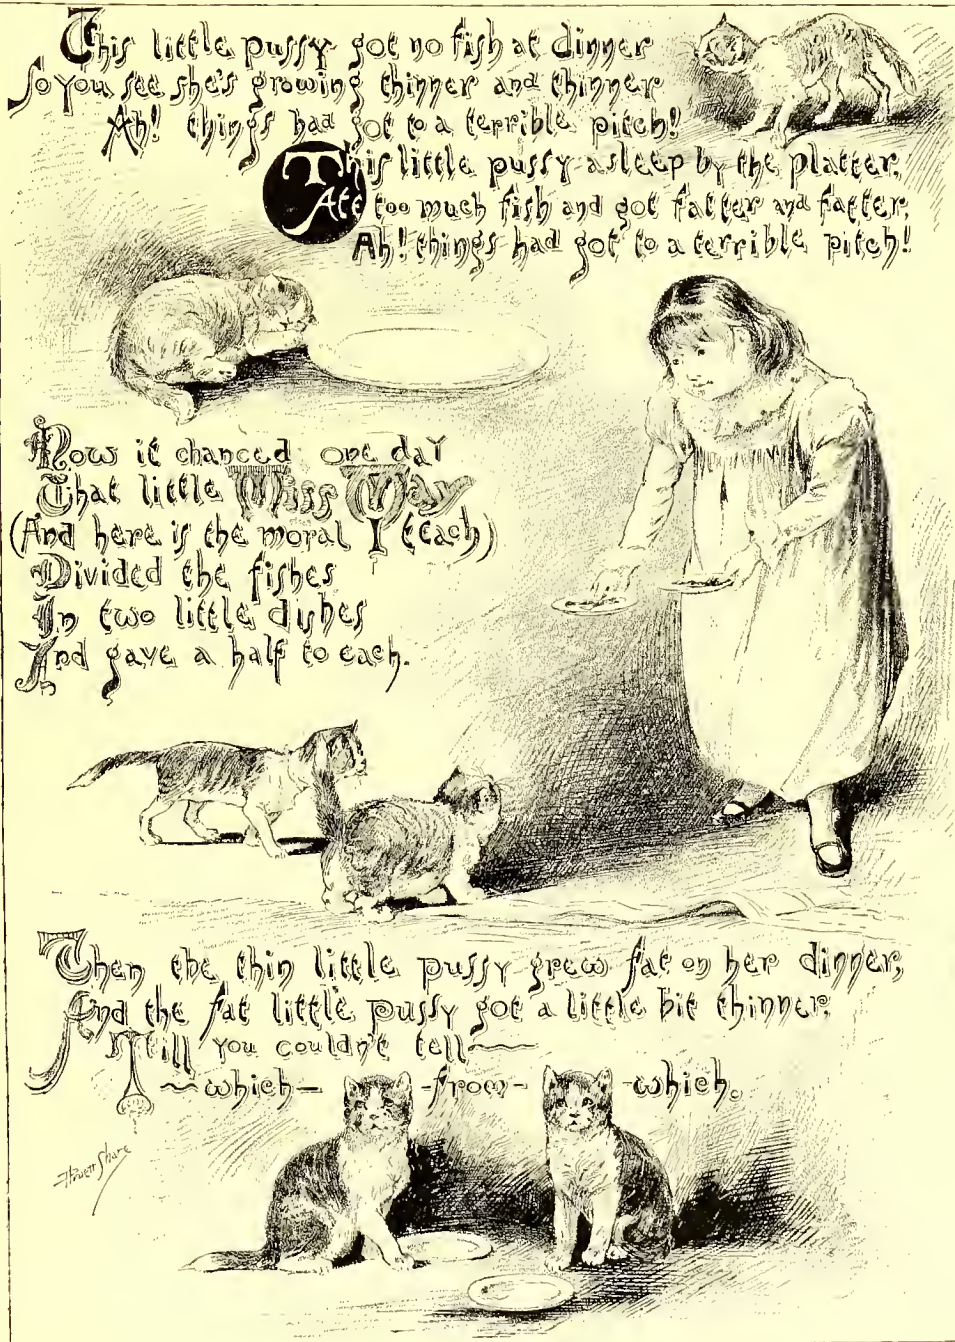 This little pussy got no fish at dinner
So you see she's growing thinner and thinner
Ah! things had got to a terrible pitch!
This little pussy asleep by the platter,
Ate too much fish and got fatter and fatter,
Ah! things had got to a terrible pitch!
Now it chanced one day
That little Miss May
(And here is the moral I teach)
Divided the fishes
In two little dishes
And gave a half to each.
Then the thin little pussy grew fat on her dinner,
And the fat little pussy got a little bit thinner,
Till you couldn't tell
which from which.
H Pruett Share